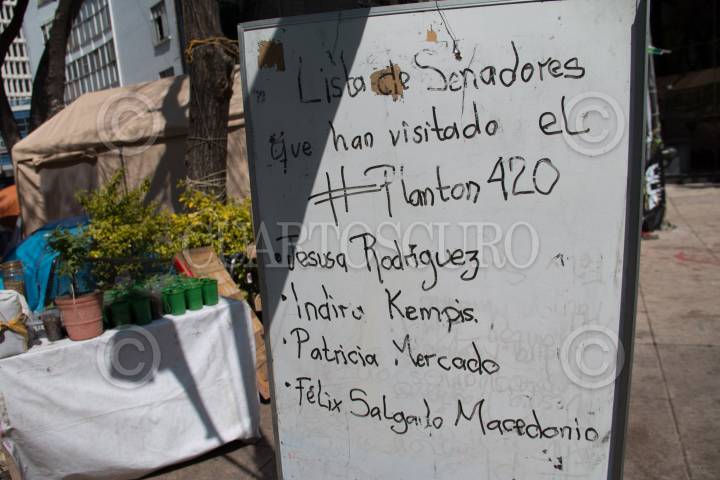 Lista de Senadores
que han visitado el
#Planton 420
• Jesusa Rodríguez
• Indira Kempis.
• Patricia Mercado
• Félix Salgado Macedonio
CUARTOSCURO